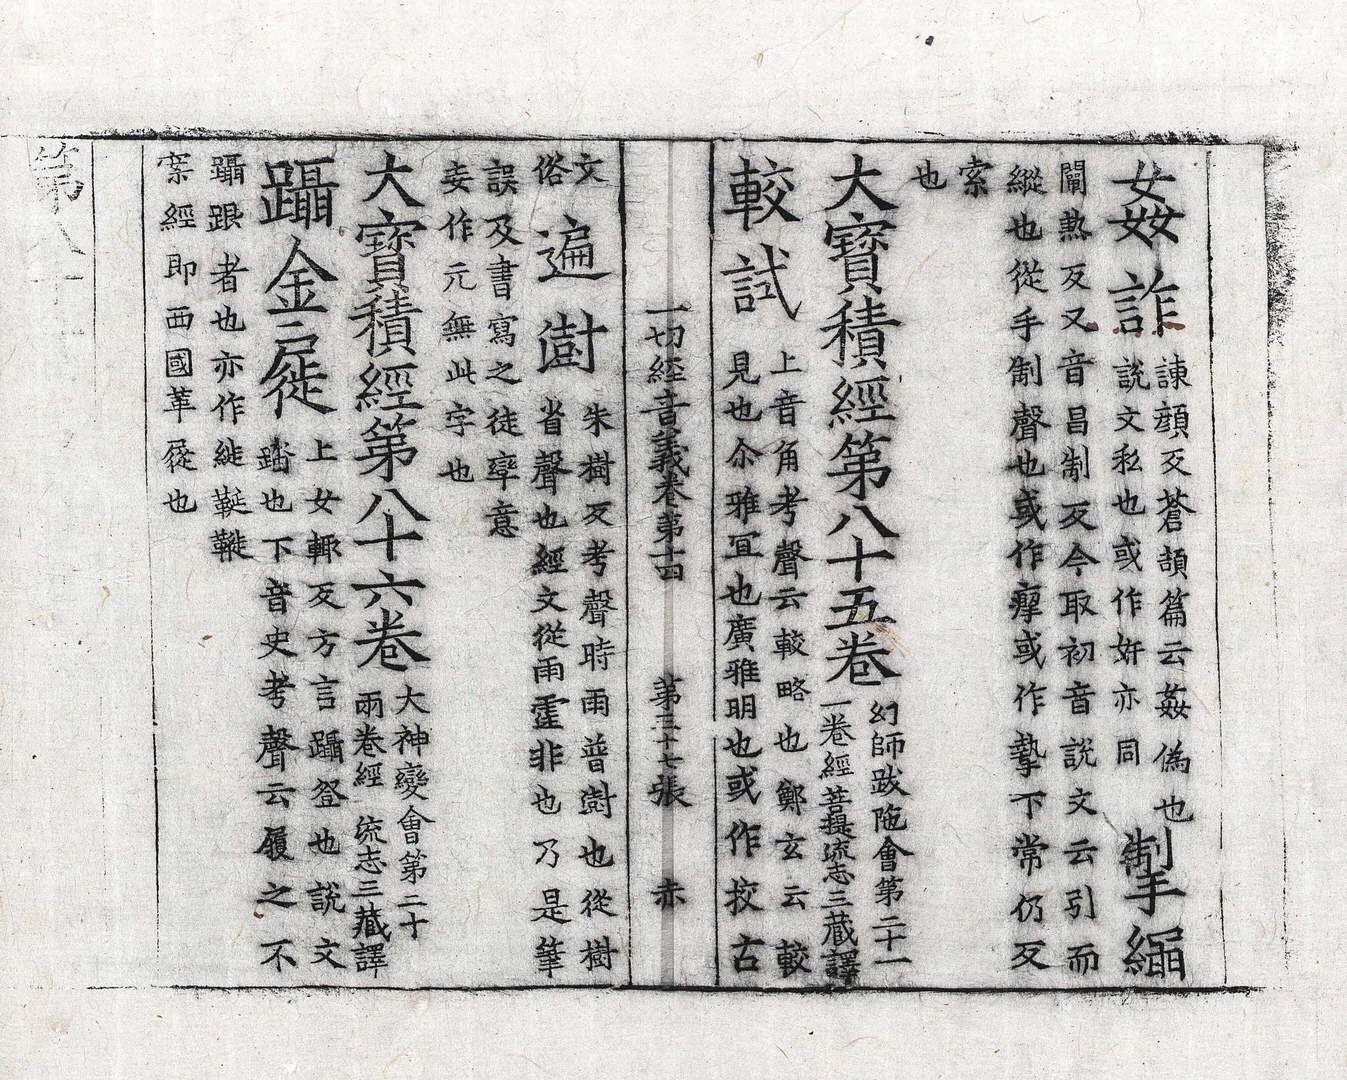 姦詐
諫顔反蒼頡篇云姦偽也
說文私也或作奸亦同
掣繩
闡熱反又音昌制反今取初音說文云引而
縱也從手制聲也或作𤸪或作摯下常仍反
索
也
大寶積經第八十五卷
幻師跋陁會第二十一
一卷經菩提流志三藏譯
較試
上音角考聲云較略也鄭玄云較
見也尒雅冝也廣雅明也或作挍古
一切經音義卷第十四 第三十七張 赤
文
俗
遍澍
朱樹反考聲時雨普澍也從樹
省聲也經文從雨霔非也乃是筆
誤及書寫之徒率意
妄作元無此字也
大寶積經第八十六卷
大神變會第二十
兩卷經 流志三藏譯
躡金屣
上女輒反方言躡登也說文
蹈也下音史考聲云履之不
躡跟者也亦作縰䩢鞾
案經即西國革屣也
第八十